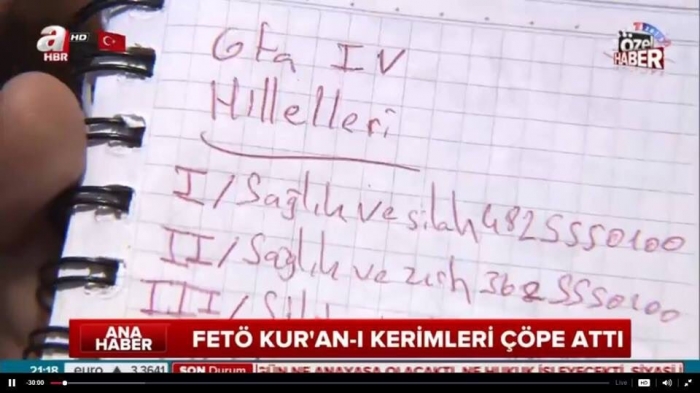 a
HD
HBR
ÖZEL
HABER
Gta IV
Hıllelleri
I/Sağlık ve silah 482 555 0100
II/Sağlık ve zırh 362 555 0100
III/
ANA
HABER
FETÖ KUR'AN-I KERİMLERİ ÇÖPE ATTI
21:18 euro ▲ 3.3641 SON Durum GÜN NE ANAYASA OLACAKTI, NE HUKUK İŞLEYECEKTİ, SİYASİ
-30:00 Live HD